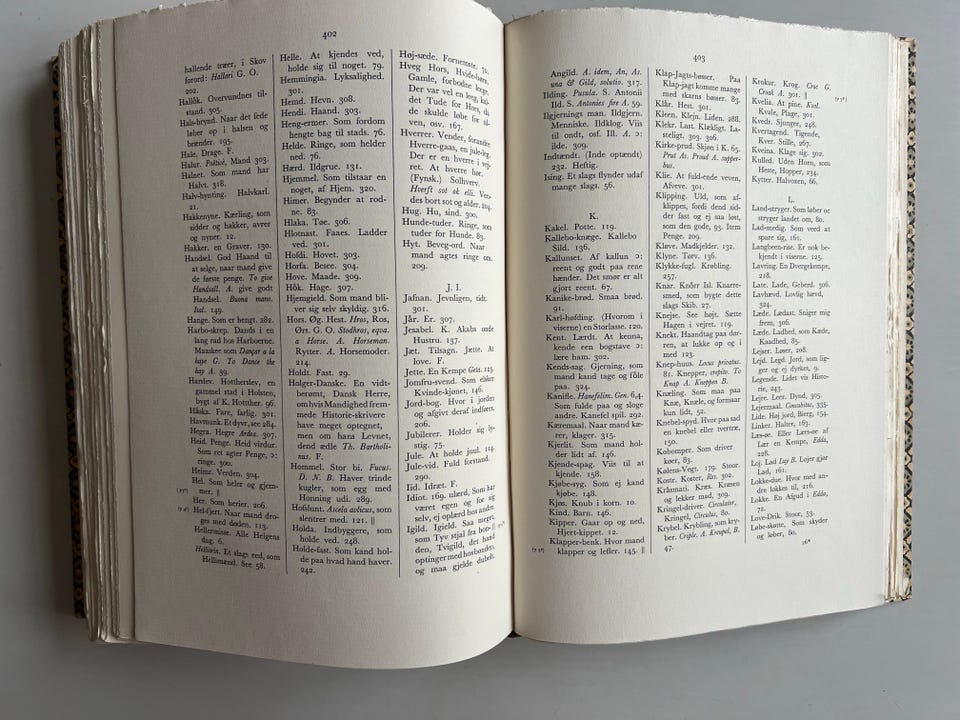 402
hallende træer, i Skov
forord: Halløri G. O.
202.
Hallôk. Overvundnes til-
stand. 305.
Hals-brynd. Naar det fede
løber op i halsen og
brænder. 195.
Hale, Drage. F.
Halur. Poëticè, Mand 303.
Halnet. Som mand har
Halvt. 318.
Halv-hynting. Halvkarl.
21.
Hakkenyne. Kærling, som
sidder og hakker, aver
og nyner. 12.
Hakker. en Graver. 130.
Handsel. God Haand til
at selge, naar mand give
de første penge. To give
Handsell. A. give godt
Handsel. Buona mano.
Ital. 149.
Hange. Som er hengt. 282.
Harbo-skrep. Dands i en
lang rad hos Harboerne.
Maaskee som Dançer a la
hape G. To Dance the
hay A. 39.
Harslev. Hottherslev, en
gammel stad i Holsten,
bygt af K. Hotther. 96.
Håska. Fare, farlig. 301.
Havmunk. Et dyr, see 284.
Hegra. Hegre Ardea. 307.
Heid. Penge. Heid virdur.
Som ret agter Penge, ɔ:
ringe. 300.
Heimr. Verden. 304.
Hel. Som heler og gjem-
mer. ||
Her. Som herier. 206.
Hel-fjert. Naar mand dro-
ges med døden. 113.
Hellermisse. Alle Helgens
dag. 6.
Hellisin. Et slags eed, som
Hellimænd. See 58.
Helle. At kjendes ved,
holde sig til noget. 79.
Hemmingia. Lyksalighed.
301.
Hemd. Hevn. 308.
Hendi. Haand. 303.
Heng-ermer. Som fordom
hengte bag til stads. 76.
Helde. Ringe, som helder
ned. 76.
Hærd. Ildgrue. 131.
Hjemmel. Som tilstaar en
noget, af Hjem. 320.
Himer. Begynder at rod-
ne. 83.
Hlaka. Tøe. 306.
Hlotnast. Faaes. Ladder
ved. 301.
Hofdi. Hovet. 303.
Horfa. Besee. 304.
Hove. Maade. 309.
Hôk. Hage. 307.
Hjemgield. Som mand bli-
ver sig selv skyldig. 316.
Hors. Øg. Hest. Hros, Ros,
Ørs. G. O. Stodhros, equa.
a Horse. A. Horseman.
Rytter. A. Horsemoder.
214.
Holdt. Fast. 29.
Holger-Danske. En vidt-
berømt, Dansk Herre,
om hvis Mandighed frem-
mede Historie-skrivere
have meget optegnet,
men om hans Levnet,
dend ædle Th. Bartholi-
nus. F.
Hommel. Stor bi. Fucus.
D. N. B. Haver trinde
kugler, som egg med
Honning udi. 289.
Hofslunt. Ascola aulicus, som
slentrer med. 121. ||
Holda. Indbyggere, som
holde ved. 248.
Holde-fast. Som kand hol-
de paa hvad hand haver.
242.
Høj-sæde. Fornemste. 72.
Hveg Hors, Hvide-børn.
Gamle, forbodne bøge.
Der var vel en leeg, kal-
det Tude for Horn, th
de skulde løbe for al-
ven, osv. 167.
Hverrer. Vender, forander
Hverre-gaas, en jule-leg.
Der er en hverre i vej-
ret. At hverre hør.
(Fynsk.) Solhverv.
Hverft sot ok elli. Ver-
des bort sot og alder. 204.
Hug. Hu, sind. 300.
Hunde-tuder. Ringe, som
tuder for Hunde. 83.
Hyt. Beveg-ord. Naar
mand agtes ringe om.
209.
J. I.
Jafnan. Jevnligen, tidt.
301.
Jår. Er. 307.
Jesabel. K. Akabs onde
Hustru. 137.
Jæt. Tilsagn. Jætte. At
love. F.
Jette. En Kempe Geis. 125.
Jomfru-svend. Som elsker
Kvinde-kjønet, 146.
Jord-bog. Hvor i jorden
og afgivet deraf indføres.
206.
Jubilerer. Holder sig ly-
stig. 75.
Jule. At holde juul. 114.
Jule-vid. Fuld forstand.
290.
Iid. Idræt. F.
Idiot. 169. ulærd, Som har
været egen og for sig
selv, ej oplærd hos andre.
Igild. Igield. Saa meget,
som Tyv stjal fra bon-||
den, Tvigild, det hand
optinger med hos bonden,
og maa gjelde dubelt.
403
Angild. A. idem, An, As.
una & Gild, solutio. 317.
Ilding. Pusula. S. Antonii
Ild. S. Antonies fire A. 59.
Ilgjernings man. Ildgjern.
Menniske. Ildklog. Viis
til ondt, osf. Ill. A. ɔ:
ilde. 309.
Indtændt. (Inde optændt)
232. Heftig.
Ising. Et slags flynder udaf
mange slags. 56.
K.
Kakel. Potte. 119.
Kallebo-knæge. Kallebo
Sild. 136.
Kallunset. Af kallun ɔ:
reent og godt paa rene
hænder. Det smør er alt
gjort reent. 67.
Kanike-brød. Smaa brød.
91.
Karl-høfding. (Hvorom i
viserne) en Storlasse. 120.
Kent. Lærdt. At kenna,
kende een bogstave ɔ:
lære ham. 302.
Kends-sag. Gjerning, som
mand kand tage og føle
paa. 324.
Kanifle. Hanefelim. Gen. 6,4.
Som fulde paa og sloge
andre. Kanefel spil. 292.
Kæremaal. Naar mand kæ-
rer, klager. 315.
Kjerlit. Som mand hol-
der lidt af. 146.
Kjende-spag. Viis til at
kjende. 158.
Kjøbe-syg. Som ej kand
kjøbe. 148.
Kjøs. Knub i korn. 10.
Kind. Barn. 146.
Kipper. Gaar op og ned,
Hjert-kippet. 12.
Klapper-benk. Hvor mand
klapper og lefler. 145. ||
Klap-Jagts-bøsser. Paa
Klap-jagt komme mange
med skarns bøsser. 83.
Klår. Hest. 301.
Kleen. Klejn. Liden. 288.
Klekr. Last. Klækligt. La-
steligt. 303. 306.
Kirke-prud. Skjøn i K. 65.
Prut As. Proud A. super-
bus.
Klie. At fuld-ende veven,
Afveve. 301.
Klipping. Uld, som af-
klippes, fordi dend sid-
der fast og ej saa løst,
som den gode, 93. Item
Penge. 209.
Kløve. Madkjelder. 132.
Klyne. Tørv. 136.
Klykke-fugl. Krøbling.
257.
Knar. Knôrr Isl. Knarre-
smed, som bygte dette
slags Skib. 27.
Knejse. See højt. Sætte
Hagen i vejret. 119.
Knaphandet. Knap paa dør-
ren, at lukke op og i
med 123.
Knep-huus. Locus privatus.
81. Knepper, crepito. To
Knap A. Kneppen B.
Knæling. Som maa paa
Knæ, Knæle, og formaar
kun lidt, 52.
Knebel-spyd. Hvor paa sad
en knebel eller tvertræ,
150.
Kobomper. Som driver
køer, 83.
Kølens-Vegt. 179. Stoor.
Kostr. Koster, Riis. 302.
Kråsmati. Kræs. Kræsen
og lekker mad, 309.
Kringel-driver. Circulator,
Kringel, Circulus, 80.
Krybel. Krybling, som kry-
ber. Criple. A. Krempel, B.
47.
Krokur. Krog. Croc G.
Crook A. 301. ||
Kvelia. At pine. Kvel.
Kvale, Plage, 301.
Kvedr. Sjunger, 248.
Kvertagend. Tigende,
Kver. Stille, 267.
Kveina. Klage sig. 302.
Kulled. Uden Horn, som
Heste, Hopper, 234.
Kytter. Halvoxen, 66.
L.
Land-stryger. Som løber oc
stryger landet om, 80.
Lad-medig. Som veed at
spare sig, 161.
Langbeen-rise. Er nok be-
kjendt i viserne. 125.
Lavring. En Dvergekempe,
218.
Late. Lade, Geberd. 306.
Lavhævd. Lovlig hævd,
324.
Læde. Ladast. Sniger mig
frem, 306.
Læde. Ladhed, som Kæde,
Kaadhed, 85.
Lejser. Løser, 208.
Lejd. Legd. Jord, som lig-
ger og ej dyrkes, 9.
Legende. Lidet vis Histo-
rie, 243.
Lejre. Leer. Dynd, 305.
Lejermaal. Concubitus, 335.
Lide. Høj jord, Bierg, 154.
Linker. Halter, 163.
Læs-øe. Eller Lærs-øe af
Lær en Kempe, Edda,
228.
Loj. Lad Luy B. Lojer gjør
Lad, 161.
Lokke-due. Hvor med an-
dre lokken til, 216.
Lokke. En Afgud i Edda,
72.
Love-Drik. Stoor, 53.
Løbe-skøtte, Som skyder
og løber, 80.
26*